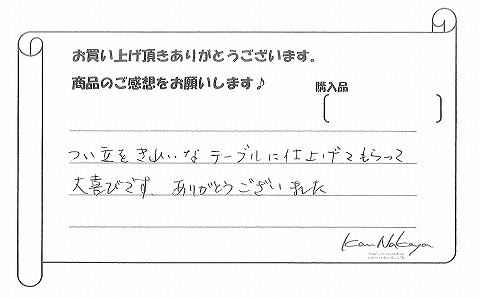 お買い上げ頂きありがとうございます。
商品のご感想をお願いします♪
購入品
つい立をきれいなテーブルに仕上げてもらって
大喜びです、ありがとうございました